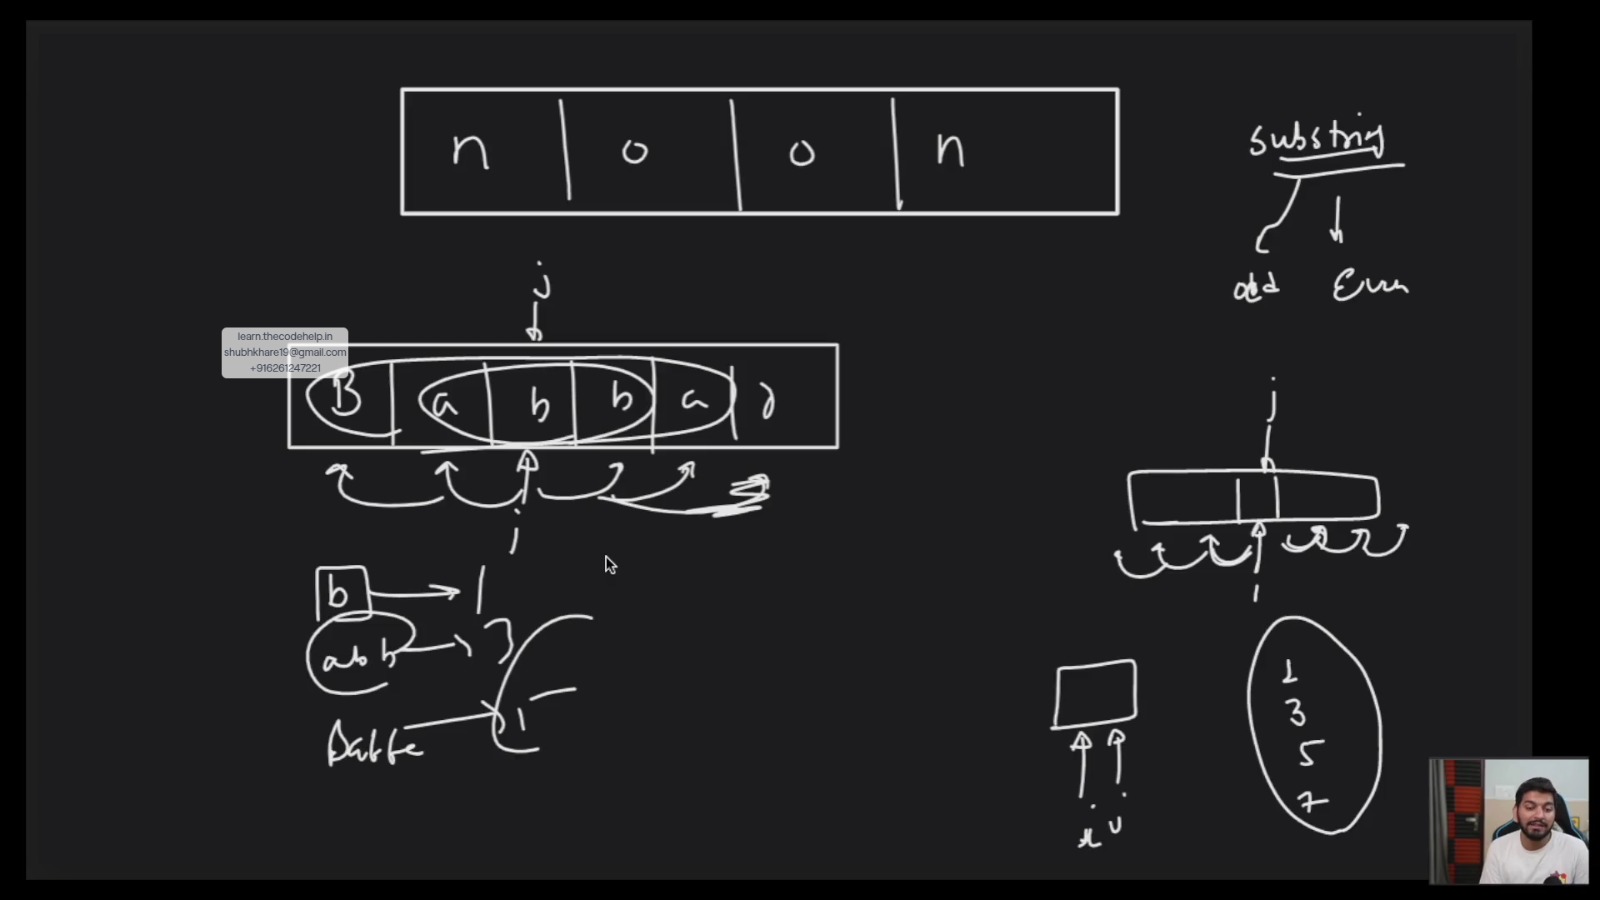 n o o n
substring
odd Even
j
learn.thecodehelp.in
shubhkhare19@gmail.com
+916261247221
B a b b a
i
b 1
abb 3
j
i
1
3
5
7
i j